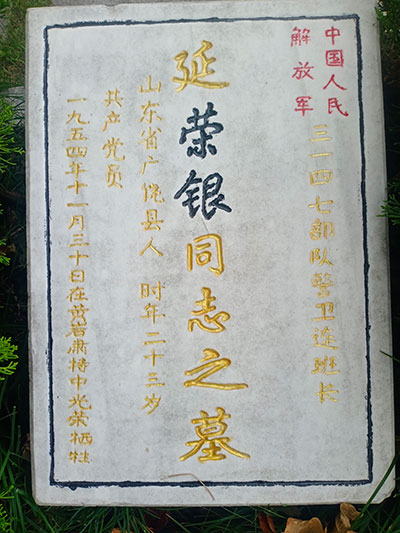 中国人民
解放军
三一四七部队警卫连班长
延荣银同志之墓
山东省广饶县人 时年二十三岁
共产党员
一九五四年十一月三十日在黄岩肃特中光荣牺牲